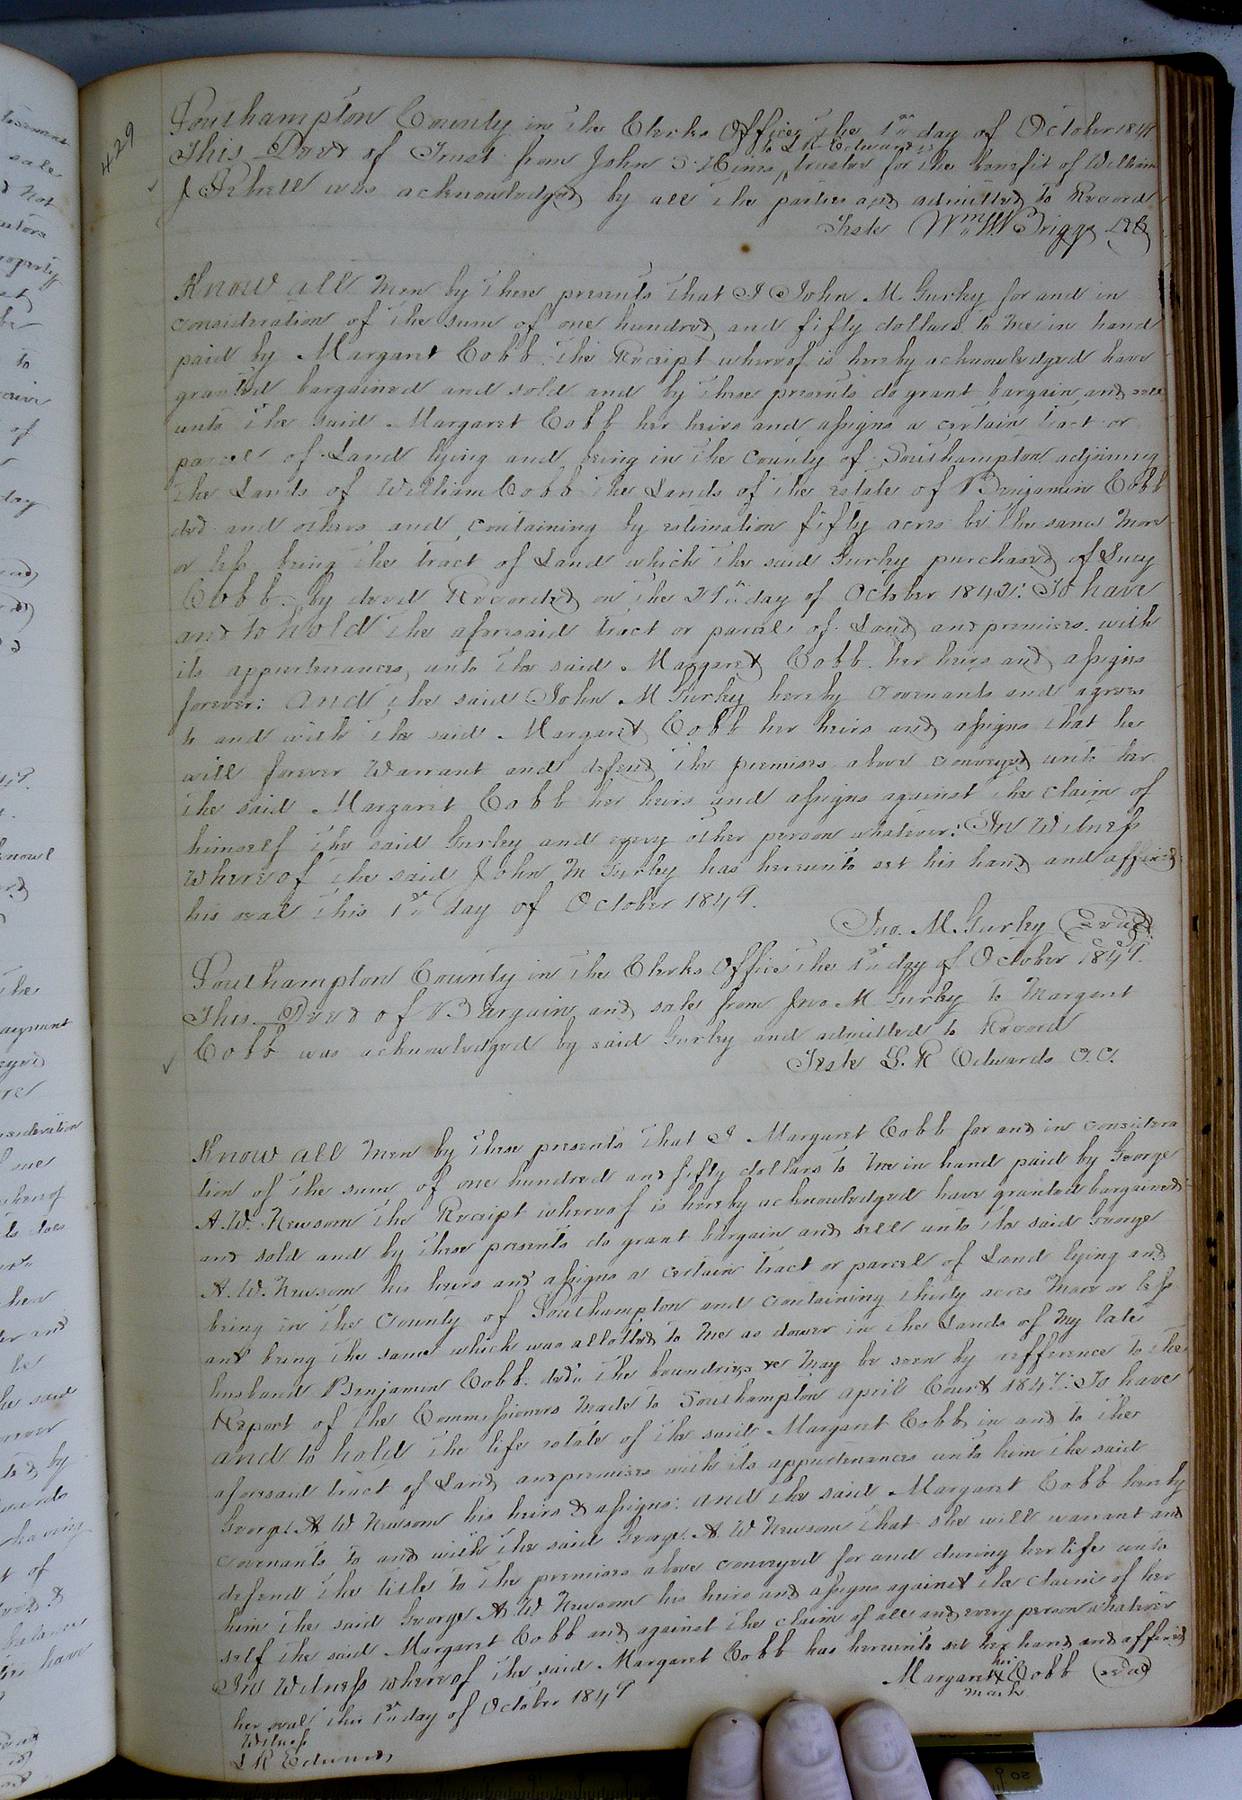 429
Southampton County in the Clerks Office the 1st day of October 1849
This Deed of Trust from John S. Hines to L R Edwards trustee for the benefit of William
J Sebrell was acknowledged by all the parties and admitted to Record
Teste Wm W Briggs
Know all Men by these presents that I John M. Gurley for and in
consideration of the sum of one hundred and fifty dollars to me in hand
paid by Margaret Cobb the Receipt whereof is hereby acknowledged have
granted bargained and sold and by these presents do grant bargain and sell
unto the said Margaret Cobb her heirs and assigns a certain tract or
parcel of Land lying and being in the County of Southampton adjoining
the Lands of William Cobb the Lands of the estate of Benjamin Cobb
decd and others and containing by estimation fifty acres be the same More
or less being the tract of Land which the said Gurley purchased of Lucy
Cobb by deed Recorded on the day of October To have
and to hold the aforesaid tract or parcel of Land and premises with
its appurtenances, unto the said Margaret Cobb her heirs and assigns
forever: And the said John M Gurley hereby covenants and agrees
to and with the said Margaret Cobb her heirs and assigns that he
will forever Warrant and defend the premises above conveyed unto her
the said Margaret Cobb her heirs and assigns against the claim of
himself the said Gurley and every other person whatever: In Witness
Whereof the said John M Gurley has hereunto set his hand and affixed
his seal this 1st day of October 1849.
Jno. M. Gurley Seal
Southampton County in the Clerks Office the 1st day of October 1849.
This Deed of Bargain and sale from Jno M Gurley to Margaret
Cobb was acknowledged by said Gurley and admitted to Record
Teste L. R Edwards
Know all Men by these presents that I Margaret Cobb for and in considera
tion of the sum of one hundred and fifty dollars to me in hand paid by George
A. W. Newsom the Receipt whereof is hereby acknowledged have granted bargained
and sold and by these presents do grant bargain and sell unto the said George
A. W. Newsom his heirs and assigns a certain tract or parcel of Land lying and
being in the County of Southampton and containing thirty acres More or less
and being the same which was allotted to Me as dower in the Lands of My late
husband Benjamin Cobb decd. the boundries &c May be seen by refference to the
Report of the Commissioners Made to Southampton april Court 1847: To have
and to hold the life estate of the said Margaret Cobb in and to the
aforesaid tract of Land and premises with its appurtenances unto him the said
George A W Newsom his heirs & assigns: and the said Margaret Cobb hereby
covenants to and with the said George A. W Newsom that she will warrant and
defend the title to the premises above conveyed for and during her life unto
him the said George A. W Newsom his heirs and assigns against the claim of her
self the said Margaret Cobb and against the claim of all and every person whatever
In Witness whereof the said Margaret Cobb has hereunto set her hand and affixed
her seal this 1st day of October 1849
Margaret her X mark Cobb Seal
Witness
L R Edwards